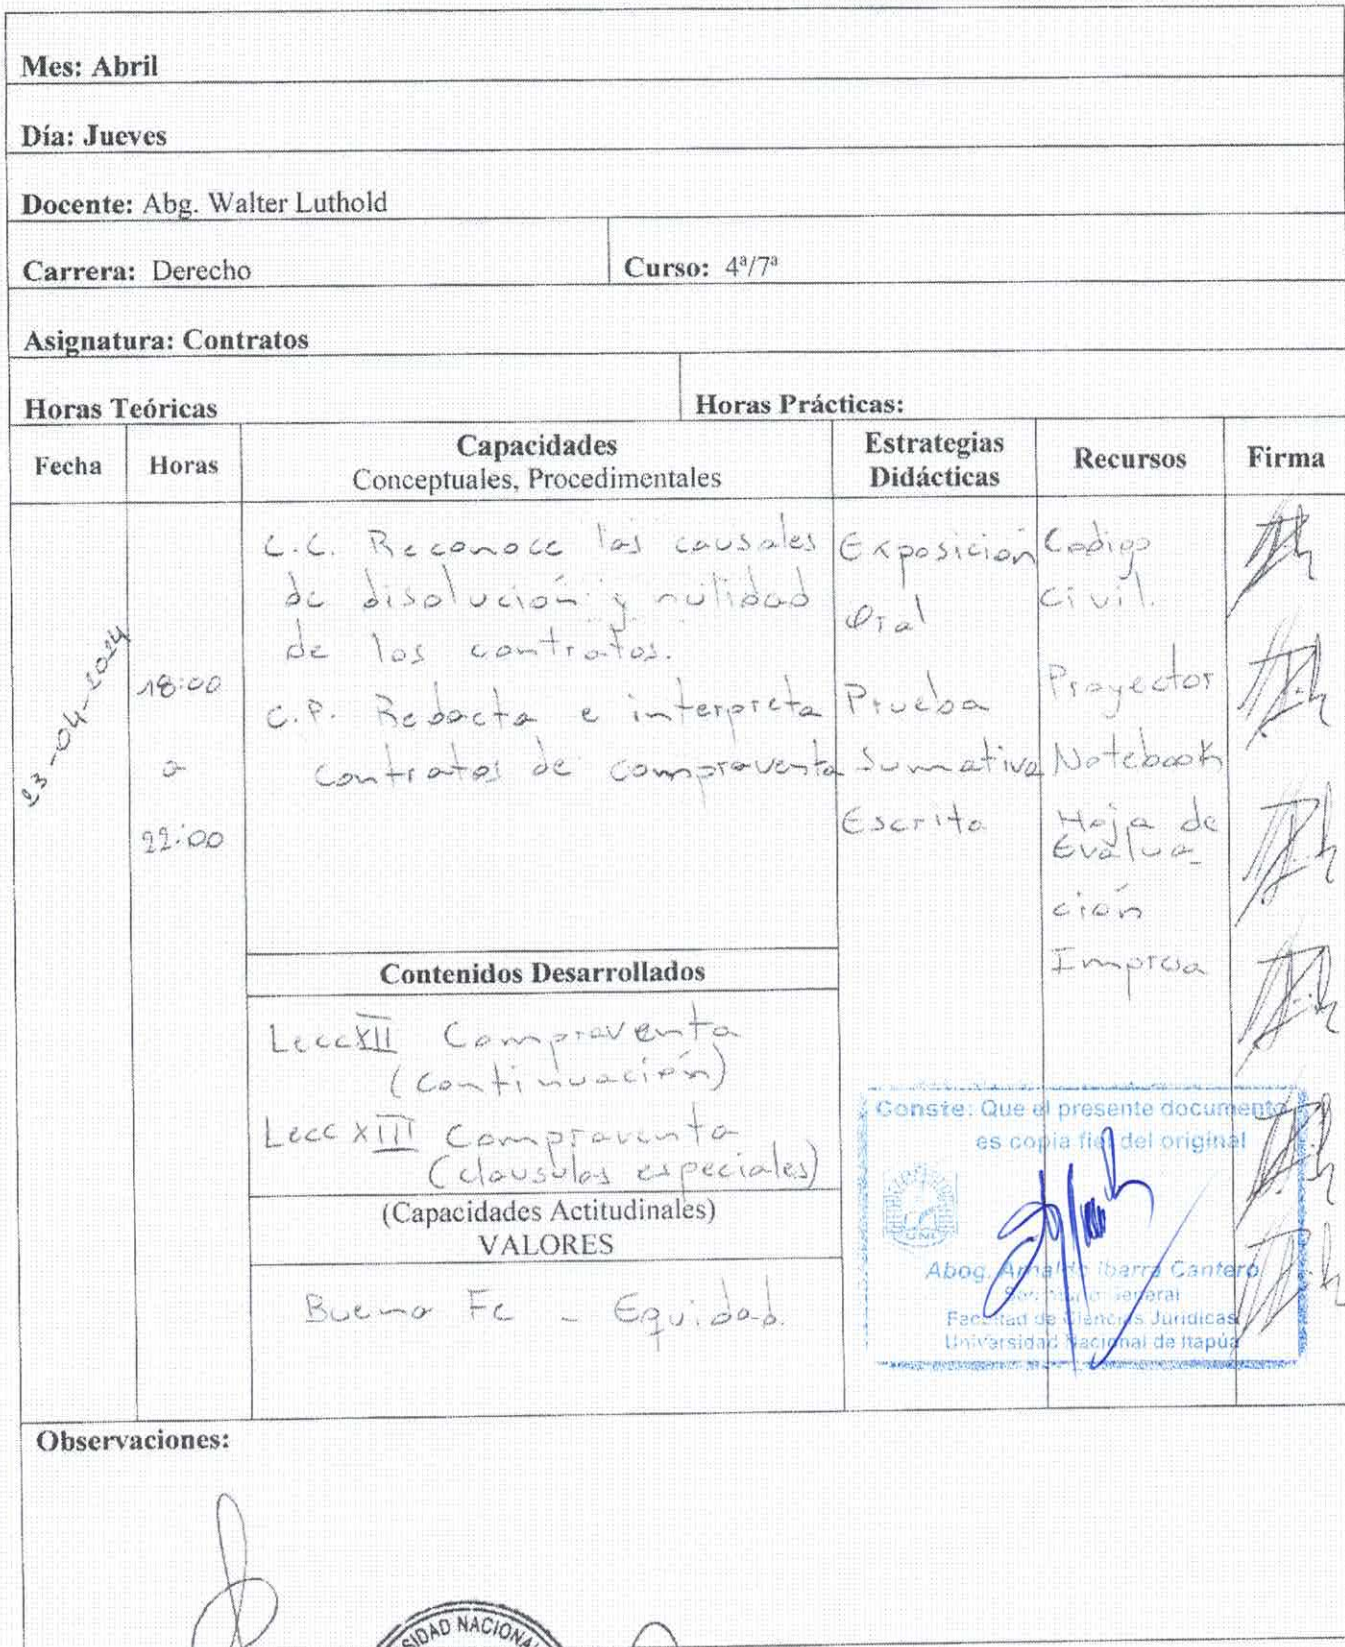 Mes: Abril
Día: Jueves
Docente: Abg. Walter Luthold
Carrera: Derecho
Curso: 4ª/7ª
Asignatura: Contratos
Horas Teóricas
Horas Prácticas:
Fecha
Horas
Capacidades
Conceptuales, Procedimentales
Estrategias
Didácticas
Recursos
Firma
23-04-2024
18:00
a
22:00
C.C. Reconoce las causales
de disolución y nulidad
de los contratos.
C.P. Redacta e interpreta
contratos de compraventa
Exposición
Oral
Prueba
Sumativa
Escrita
Codigo
Civil.
Proyector
Notebook
Hoja de
Evalua-
ción
Impresa
Contenidos Desarrollados
Lecc XII Compraventa
(Continuación)
Lecc XIII Compraventa
(clausulas especiales)
(Capacidades Actitudinales)
VALORES
Buena Fe - Equidad.
Conste: Que el presente documento
es copia fiel del original
Abog. Arnaldo Ibarra Cantero
Secretario General
Facultad de Ciencias Jurídicas
Universidad Nacional de Itapúa
Observaciones:
SIDAD NACIONAL